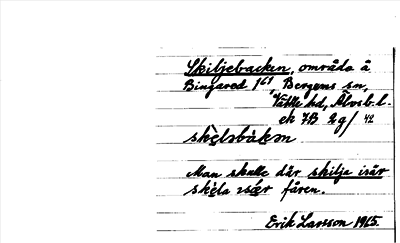 Skiljebacken, område å
Bingared 1⁶¹, Bergums sn,
Vättle hd, Älvsb. l.
ek 7B 2g/42
skèlsbàkɘn
Man skulle där skilja isär
skèla isǽr fåren.
Erik Larsson 1965.